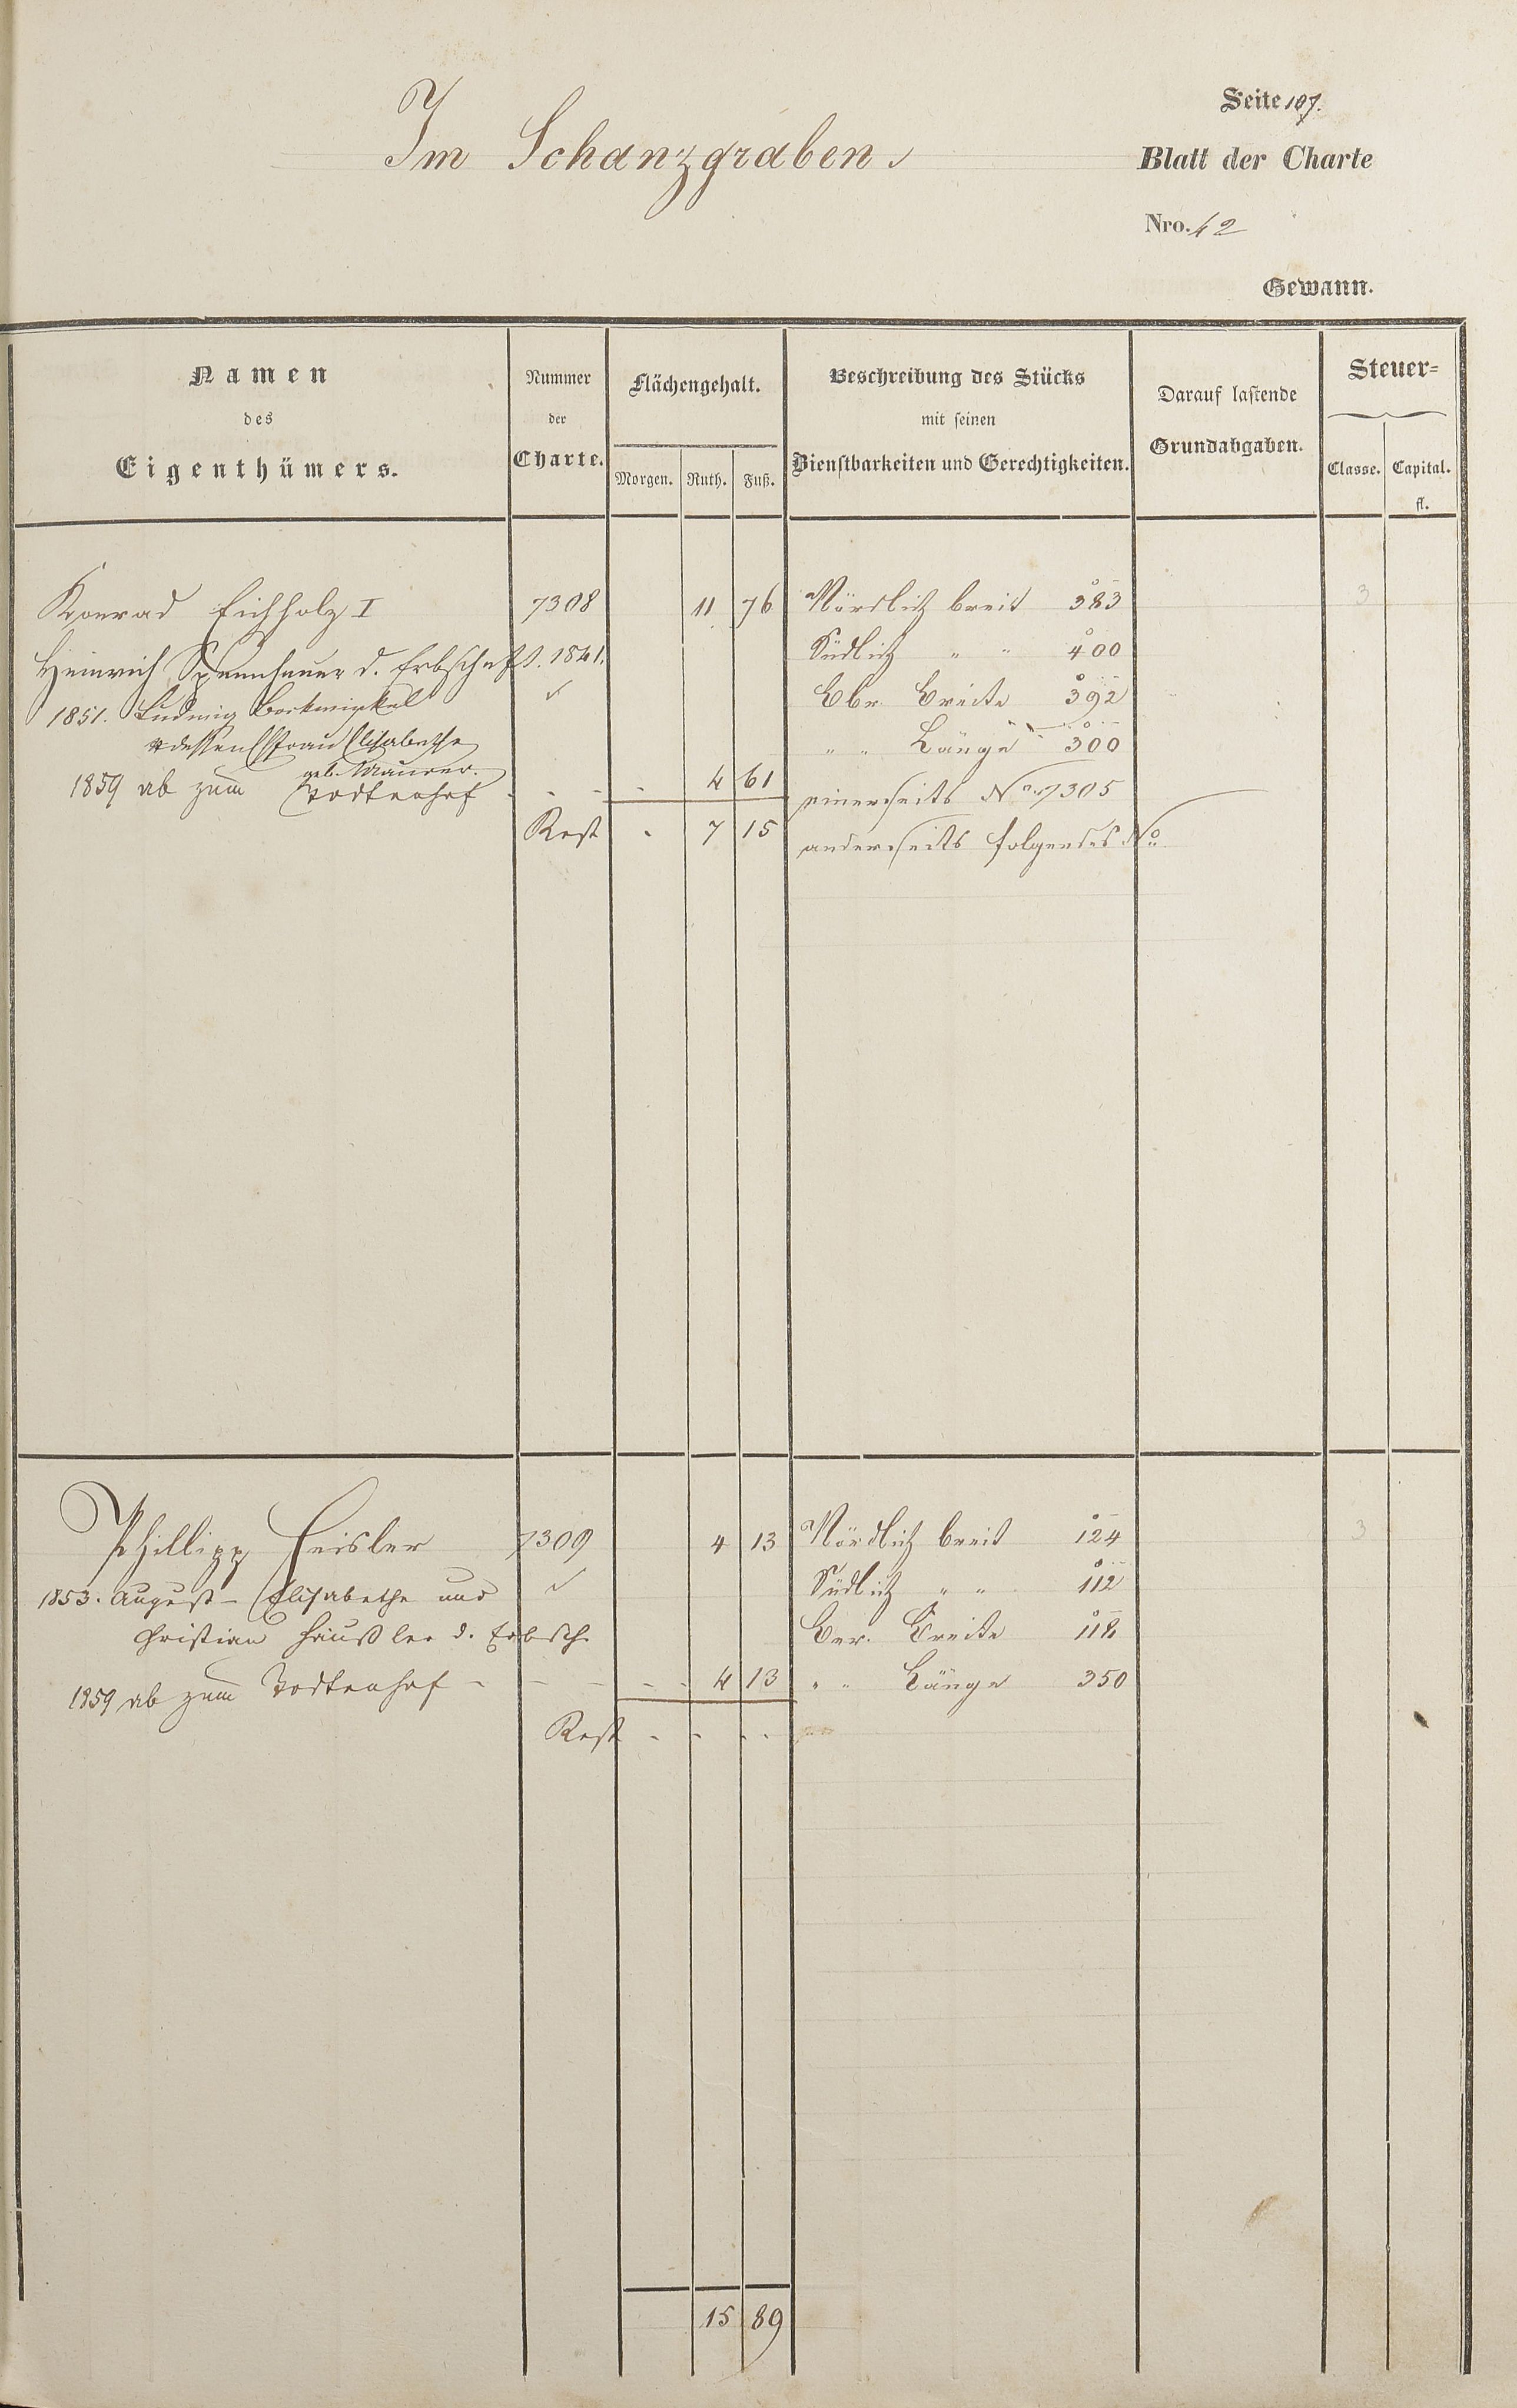 Seite 107.
Im Schanzgraben
Blatt der Charte
Nro. 42
Gewann.
Namen des Eigenthümers.
Nummer der Charte.
Flächengehalt.
Morgen. Ruth. Fuß.
Beschreibung des Stücks mit seinen Dienstbarkeiten und Gerechtigkeiten.
Darauf lastende Grundabgaben.
Steuer=
Classe. Capital. fl.
Konrad Eichholz I 7308 11 76 Nördlich breit 383 3
Heinrich d. Erbschaft. 1841. Südlich " " 400
1851. Ludwig ✓ Ebr Breite 392
dessen Ehfrau Elisabetha " " Länge 300
geb. Maurer.
1859 ab zum Todtenhof - - - - 4 61 einerseits No. 7305
Rest - 7 15 anderseits folgendes No
Phillipp Heisler 7309 4 13 Nördlich breit 124 3
1853. August - Elisabetha und ✓ Südlich " " 112
Christian Häußler d. Erbsch. Ber. Breite 118
1859 ab zum Todtenhof - - - - - 4 13 " " Länge 350
Rest - - - -
15 89